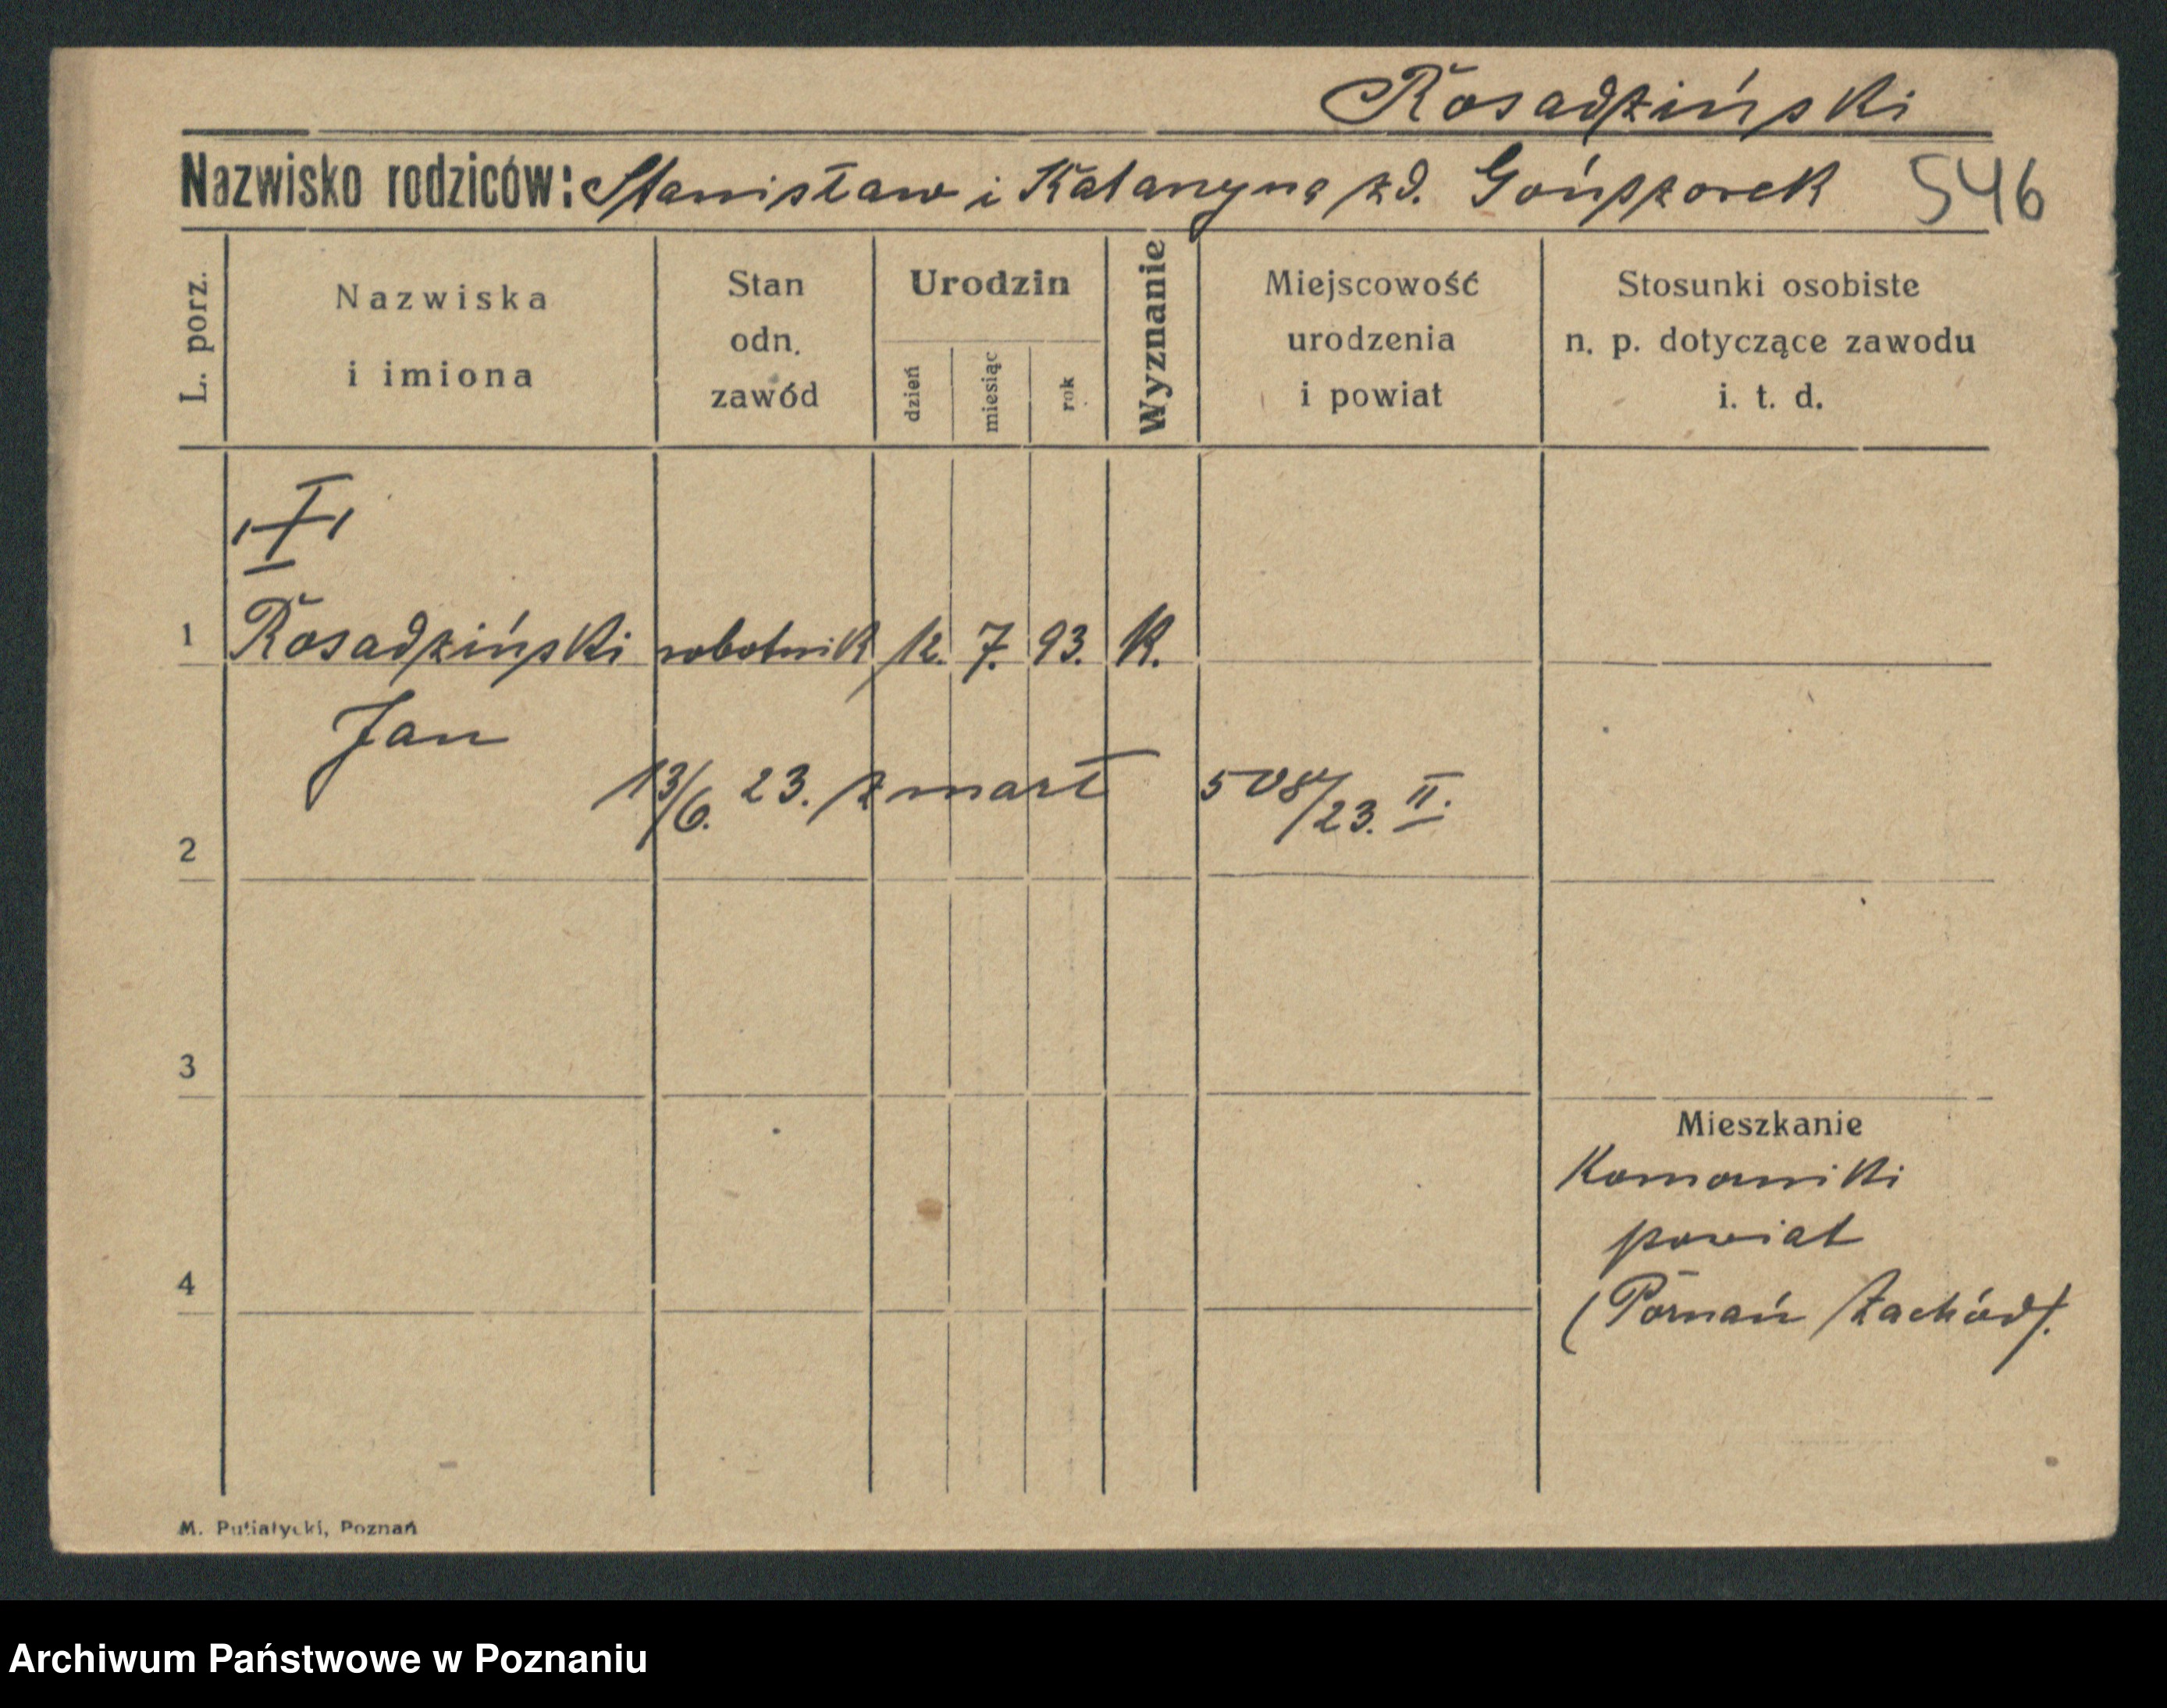 Rosadziński
Nazwisko rodziców: Stanisław i Katarzyna zd. 546
L. porz.
Nazwiska i imiona
Stan odn. zawód
Urodzin
dzień miesiąc rok
Wyznanie
Miejscowość urodzenia i powiat
Stosunki osobiste n. p. dotyczące zawodu i. t. d.
1 Rosadziński robotnik 12. 7. 93. K.
Jan
13/6. 23. zmarł 508/23. II.
2
3
Mieszkanie
Komorniki
powiat
4
(Poznań Zachód).
M. Putiatycki, Poznań
Archiwum Państwowe w Poznaniu